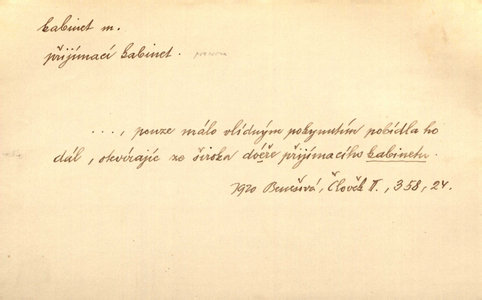 kabinet m.
přijímací kabinet.
. . . , pouze málo vlídným pokynutím pobídla ho
dál, otvírajíc ze široka dvéře přijímacího kabinetu.
1920 Benešová, Člověk II., 358, 24.